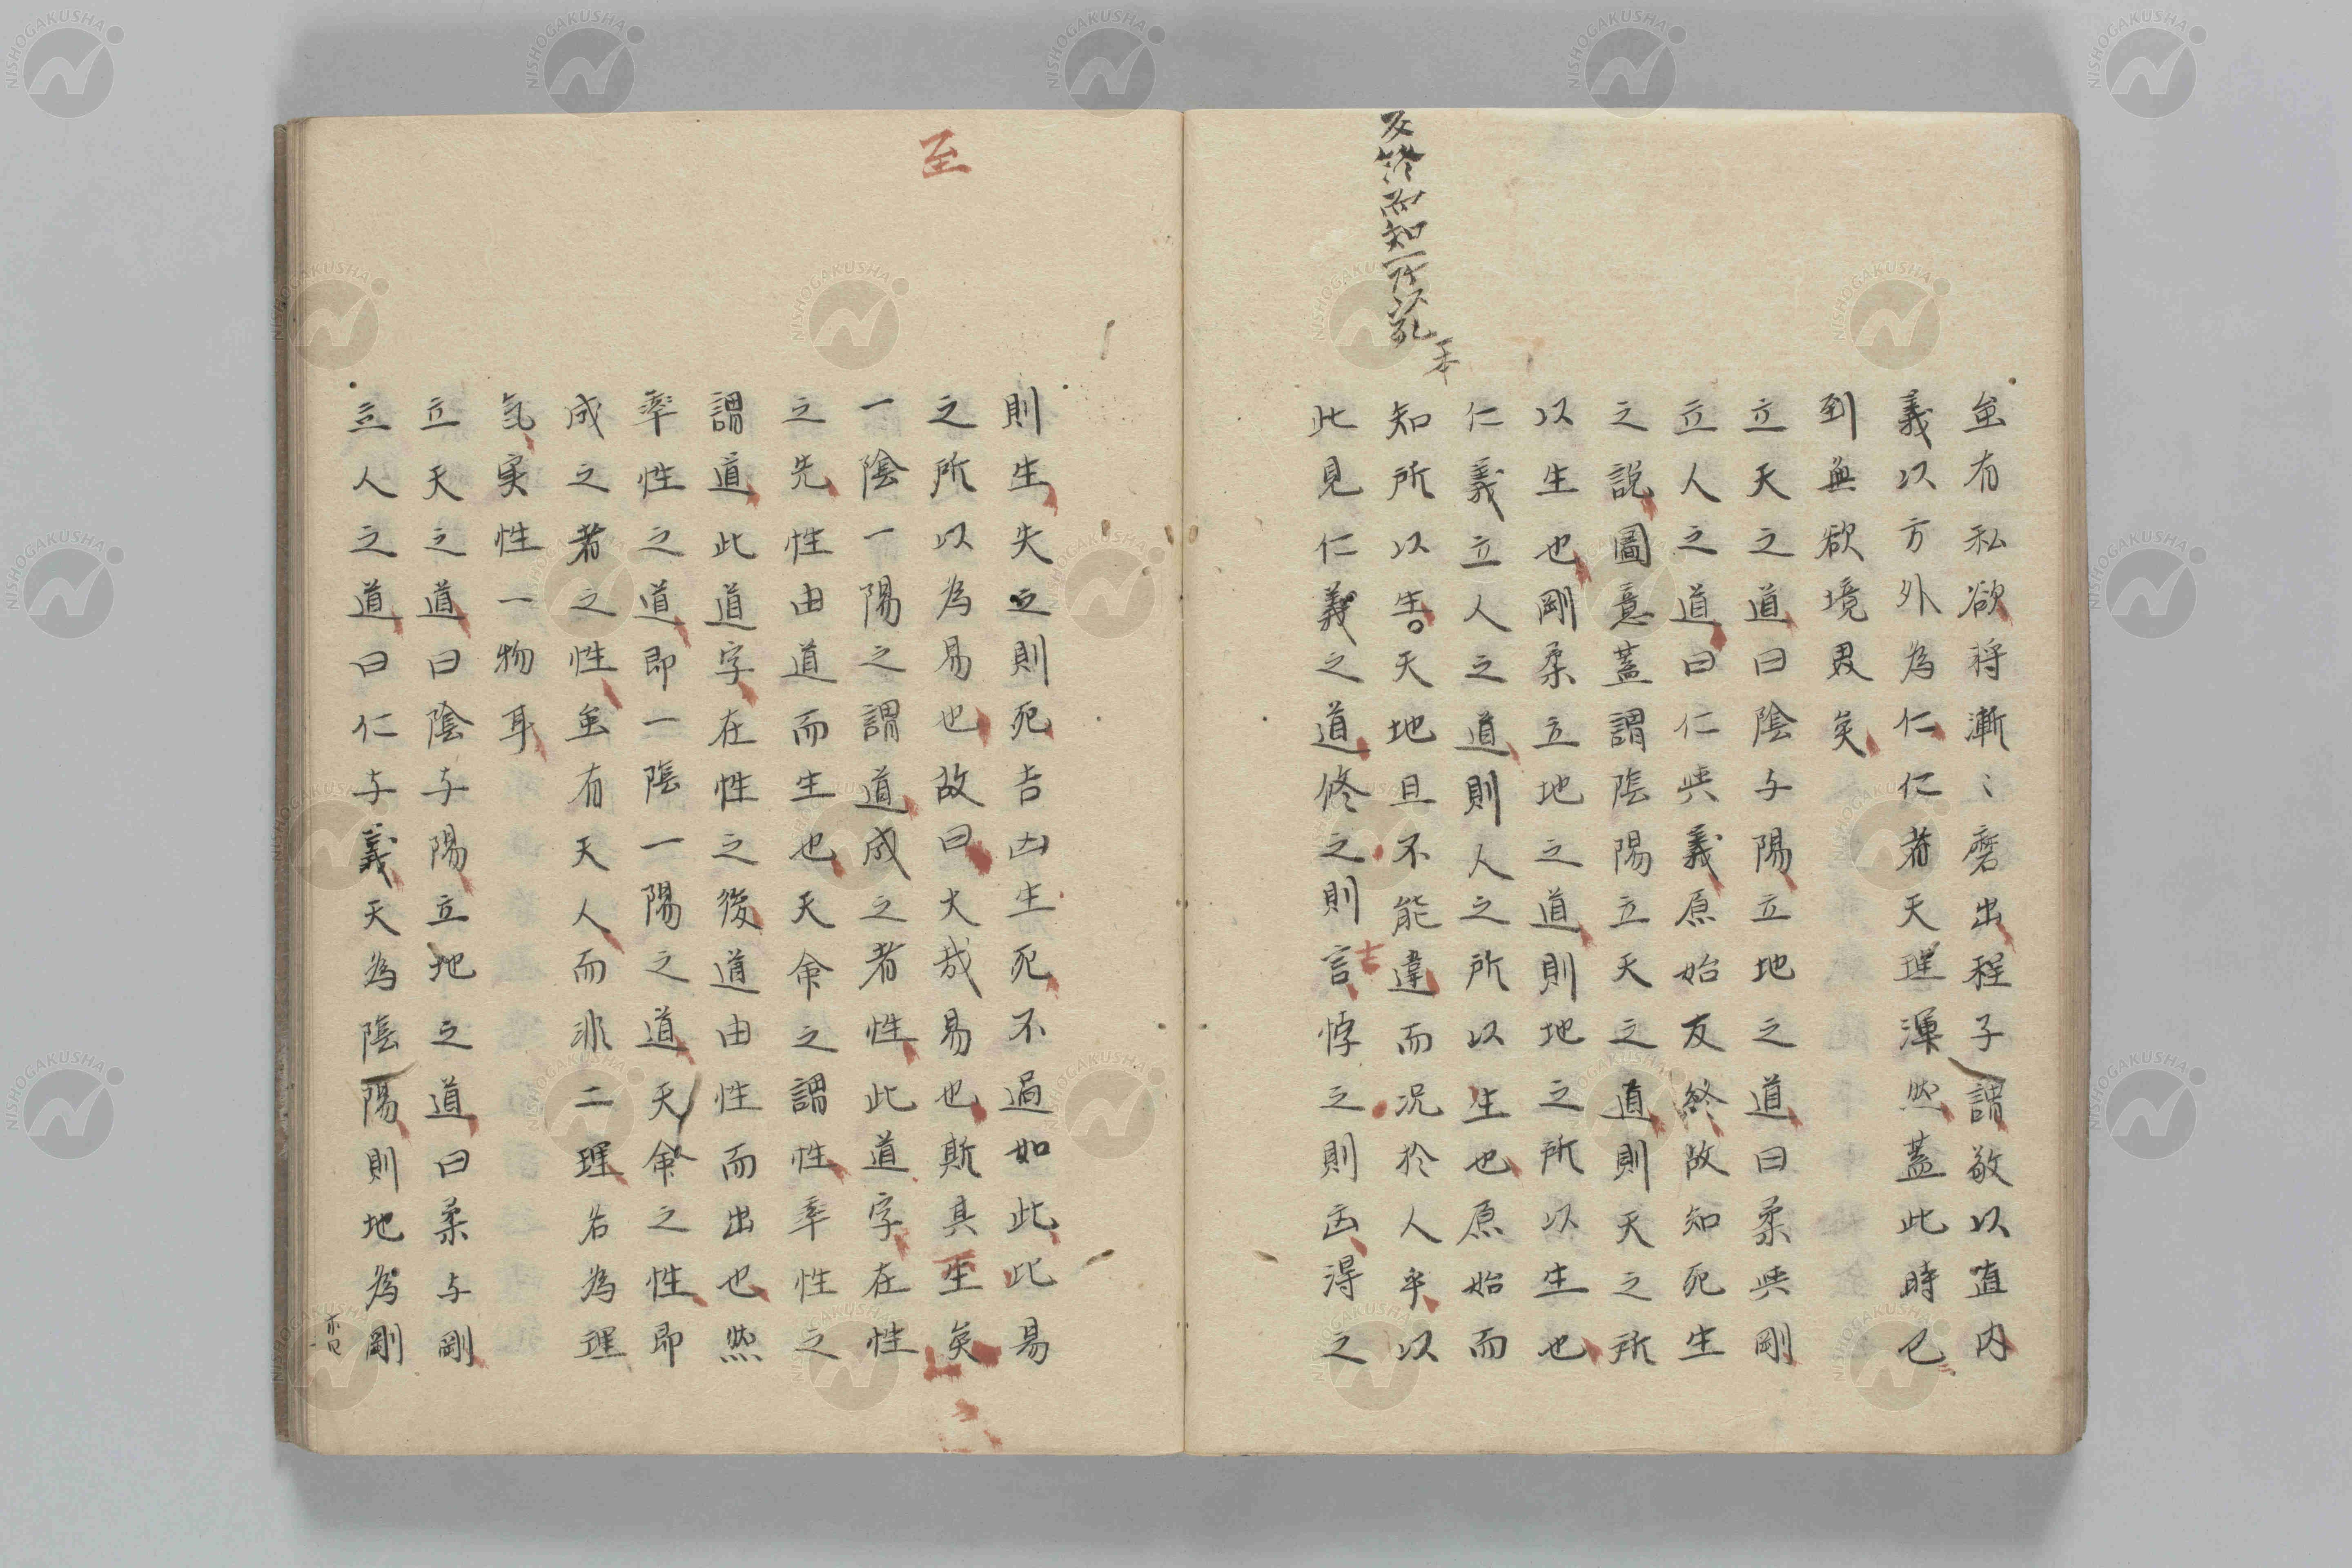 反終而知所以死
一本
虽有私欲将漸〻磨出程子謂敬以直内
義以方外為仁仁者天理渾然蓋此時已
到無欲境界矣
立天之道曰陰与陽立地之道曰柔與剛
立人之道曰仁與義原始友終故知死生
之説圖意蓋謂陰陽立天之道則天之所
以生也剛柔立地之道則地之所以生也
仁義立人之道則人之所以生也原始而
知所以生。天地且不能違而况於人乎以
此見仁義之道修之則言悖之則凶得之
吉
至
則生失之則死吉凶生死不過如此此易
之所以為易也故曰大哉易也斯其至矣
一陰一陽之謂道成之者性此道字在性
之先性由道而生也天命之謂性率性之
謂道此道字在性之後道由性而出也然
率性之道即一陰一陽之道天命之性即
成之者之性虽有天人而非二理名為理
気実性一物耳
立天之道曰陰与陽立地之道曰柔与剛
立人之道曰仁与義天為陰陽則地為剛
NISHOGAKUSHA